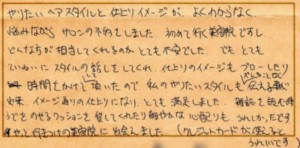 やりたいヘアスタイルと仕上りイメージが、よくわからなく
悩みながらサロンの予約をしました。初めて行く美容院ですし
どんな方が担当してくれるのか、とても不安でした。でも とても
ていねいに スタイルの話しをしてくれ、仕上りのイメージも ブローしたり
時間をかけて 頂いたので 私のやりたいスタイルも 伝える事が
出来、イメージ通りの仕上りになり とても満足しました。雑誌を読む時
うでをのせるクッションを 置いてくれたり 細やかな 心配りも うれしかったです
やっと 行きつけの美容院に 出会えました。(クレジットカードが使えると
うれしいです)